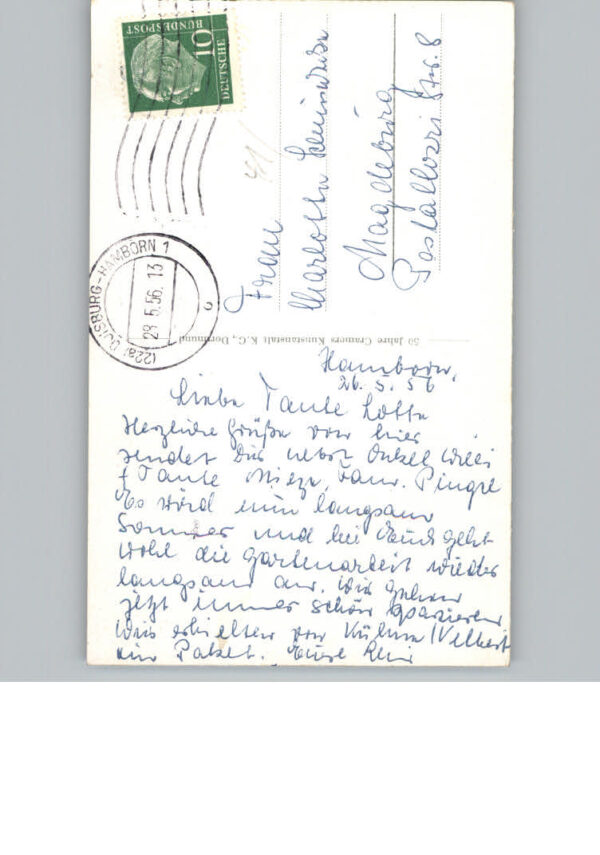 DEUTSCHE
BUNDESPOST
10
(22a) DUISBURG-HAMBORN 1
29.5.56. 13
Frau
Charlotte
Magdeburg
Pestallozzi Str. 8
50 Jahre Cramers Kunstanstalt K.G., Dortmund
Hamborn,
26.5.56
Liebe Tante Lotte
Herzliche Grüße von hier
sendet Dir nebst Onkel Willi
Tante Mieze, Fam. Pingel
Es wird nun langsam
Sommer und bei Euch geht
wohl die Gartenarbeit wieder
langsam an. Wir gehen
jetzt immer schön spazieren
Wir erhielten von
ein Paket. Eure